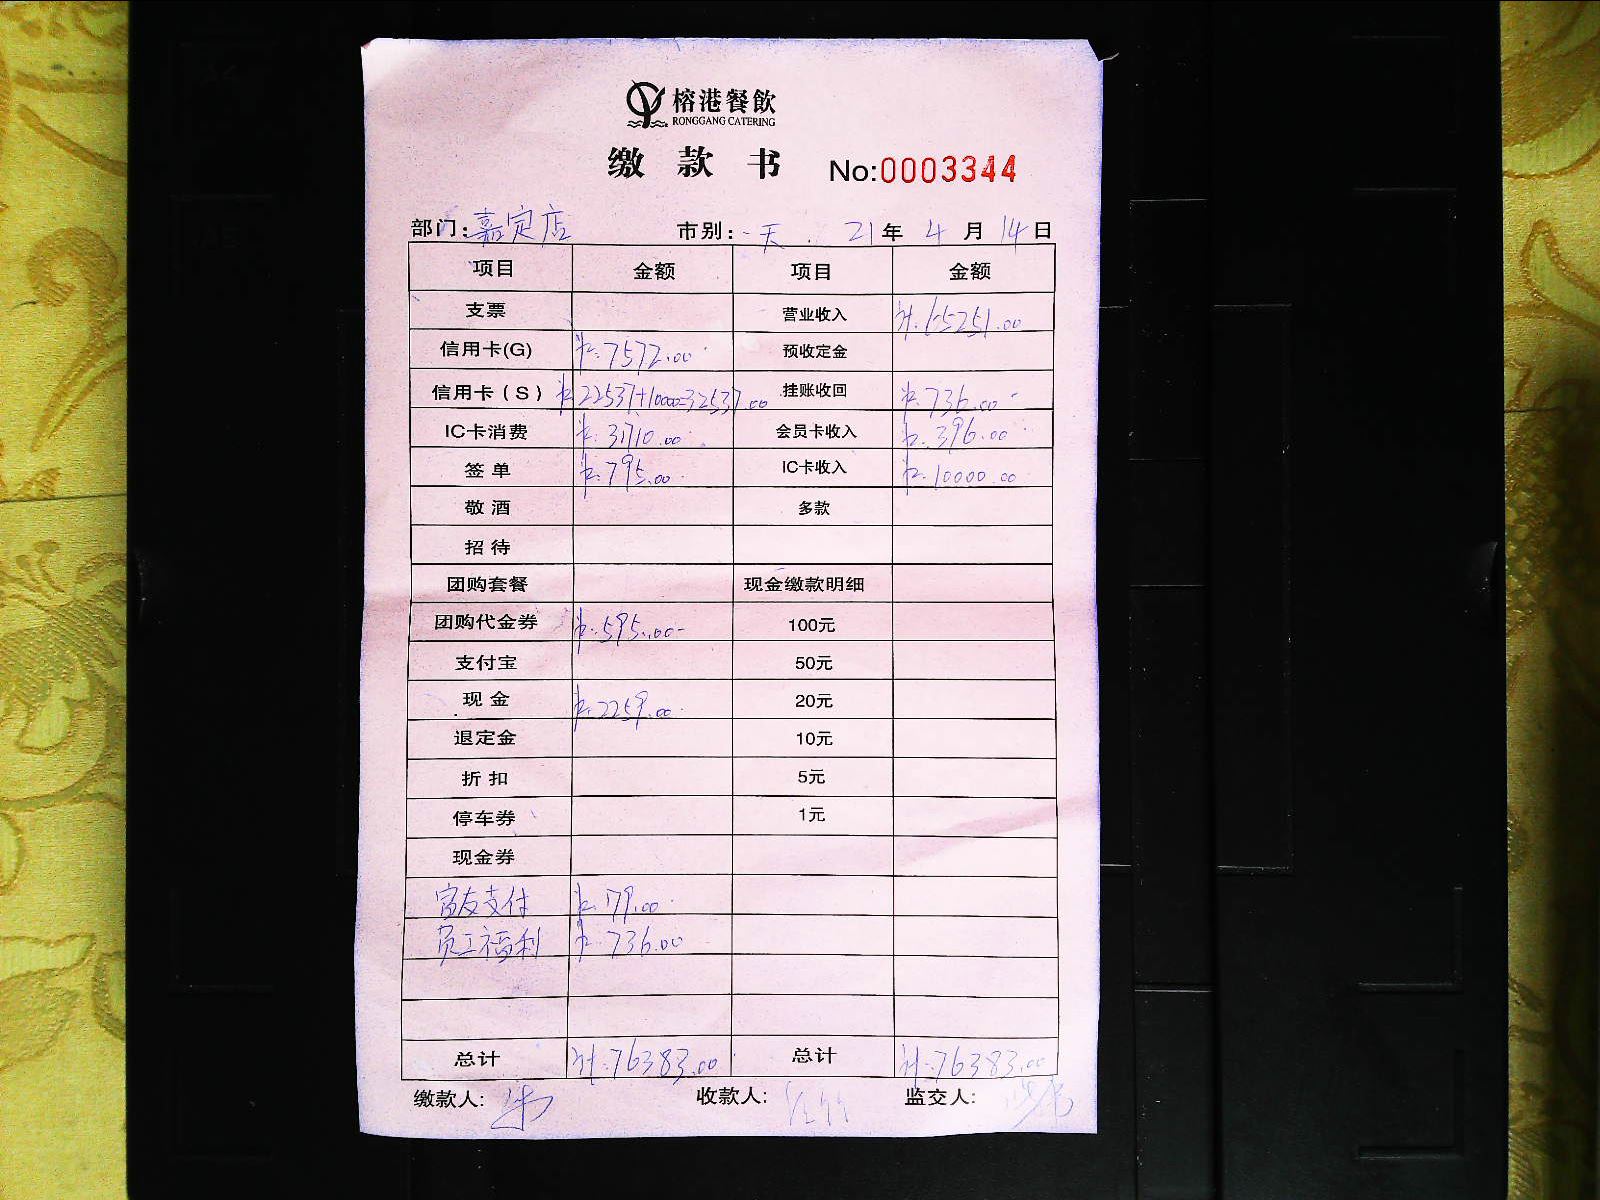 榕港餐飲
RONGGANG CATERING
缴款书 No:0003344
部门:嘉定店 市别:一天. 21年4月14日
项目 金额 项目 金额
支票 营业收入 ¥.65251.00
信用卡(G) ¥.7572.00 预收定金
信用卡(S) ¥22537+10000=32537.00 挂账收回 ¥.736.00
IC卡消费 ¥.31710.00 会员卡收入 ¥.396.00
签单 ¥.795.00 IC卡收入 ¥.10000.00
敬酒 多款
招待
团购套餐 现金缴款明细
团购代金券 ¥.595.00 100元
支付宝 50元
现金 ¥.2259.00 20元
退定金 10元
折扣 5元
停车券 1元
现金券
富友支付 ¥.179.00
员工福利 ¥.736.00
总计 ¥.76383.00 总计 ¥.76383.00
缴款人: 收款人: 监交人: